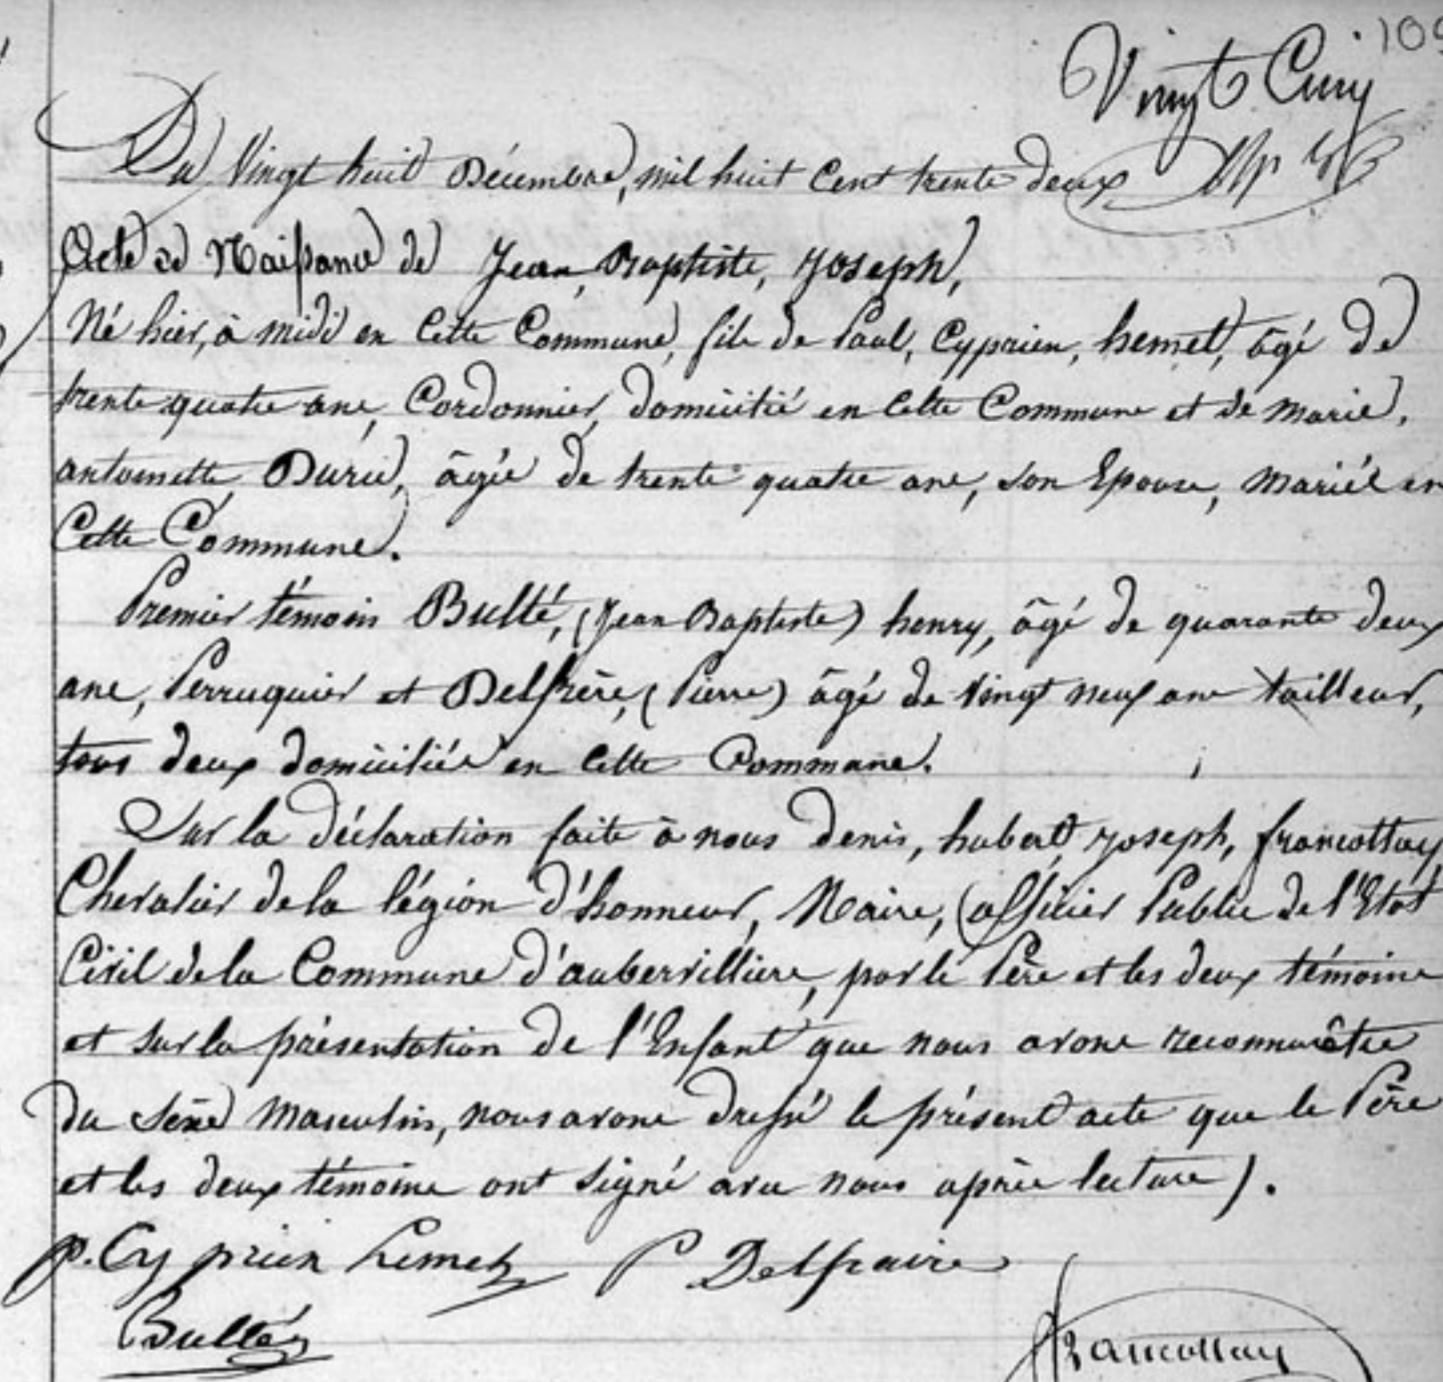 109
Vingt Cinq
Du Vingt huit Décembre, mil huit Cent trente deux
Acte de Naissance de Jean, Baptiste, Joseph,
Né hier, à midi en Cette Commune, fils de Paul, Cyprien, hemet, âgé de
trente quatre ans, Cordonnier, domicilié en Cette Commune et de Marie,
antoinette Durié, âgée de trente quatre ans, son Epouse, Mariés en
Cette Commune.
Premier témoin Bulté, (Jean Baptiste) henry, âgé de quarante deux
ans, Perruquier et Delfrère, (Pierre) âgé de Vingt neuf ans tailleur,
tous deux domiciliés en Cette Commune.
Sur la déclaration faite à nous denis, hubert, Joseph, francottay,
Chevalier de la légion d'honneur, Maire, officier Public de l'Etat
Civil de la Commune d'aubervilliers, par le Père et les deux témoins
et sur la présentation de l'Enfant que nous avons reconnu être
du Sèxe Masculin, nous avons dressé le présent acte que le Père
et les deux témoins ont signé avec nous après lecture).
p. Cyprien hemet P Delfraire
Bulté
Francottay